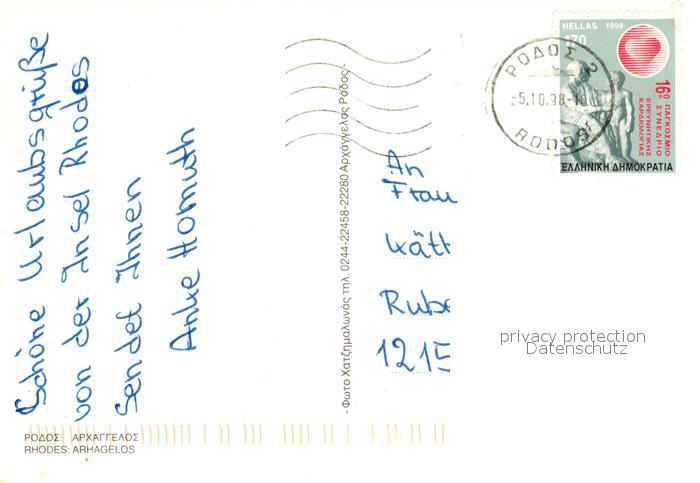 Schöne Urlaubsgrüße
von der Insel Rhodos
sendet Ihnen
Anke Homuth
ΡΟΔΟΣ: ΑΡΧΑΓΓΕΛΟΣ
RHODES: ARHAGELOS
- Φωτο Χατζημαλωνάς τηλ. 0244-22458-22280 Αρχάγγελος Ρόδος -
HELLAS 1998
170
16º ΠΑΓΚΟΣΜΙΟ
ΣΥΝΕΔΡΙΟ
ΕΡΕΥΝΗΤΙΚΗΣ
ΚΑΡΔΙΟΛΟΓΙΑΣ
ΕΛΛΗΝΙΚΗ ΔΗΜΟΚΡΑΤΙΑ
ΡΟΔΟΣ 2
-5.10.98-
RODOS
An
Frau
Käth
Rube
1215
privacy protection
Datenschutz